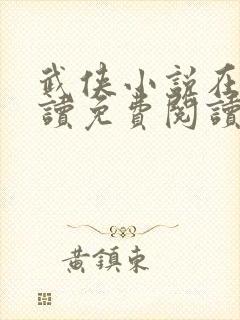 武俠小說在
讀免費閱讀
黃鎮東